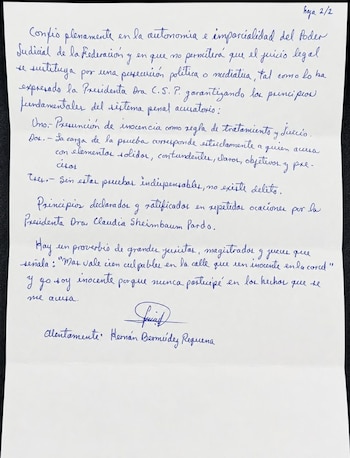 hoja 2/2
Confío plenamente en la autonomía e imparcialidad del Poder
Judicial de la Federación y en que no permitirá que el juicio legal
se sustituya por una persecución política o mediática, tal como lo ha
expresado la Presidenta Dra. C.S.P. garantizando los principios
fundamentales del sistema penal acusatorio:
Uno.- Presunción de inocencia como regla de tratamiento y juicio.
Dos.- La carga de la prueba corresponde estrictamente a quien acusa
con elementos solidos, contundentes, claros, objetivos y pre-
cisos
Tres.- Sin estas pruebas indispensables, no existe delito.
Principios declarados y ratificados en repetidas ocaciones por la
Presidenta Dra. Claudia Sheimbaum Pardo.
Hay un proverbio de grandes juristas, magistrados y jueces que
señala: "Mas vale cien culpables en la calle que un inocente en la carcel"
y yo soy inocente porque nunca participé en los hechos que se
me acusa.
Atentamente: Hernán Bermúdez Requena